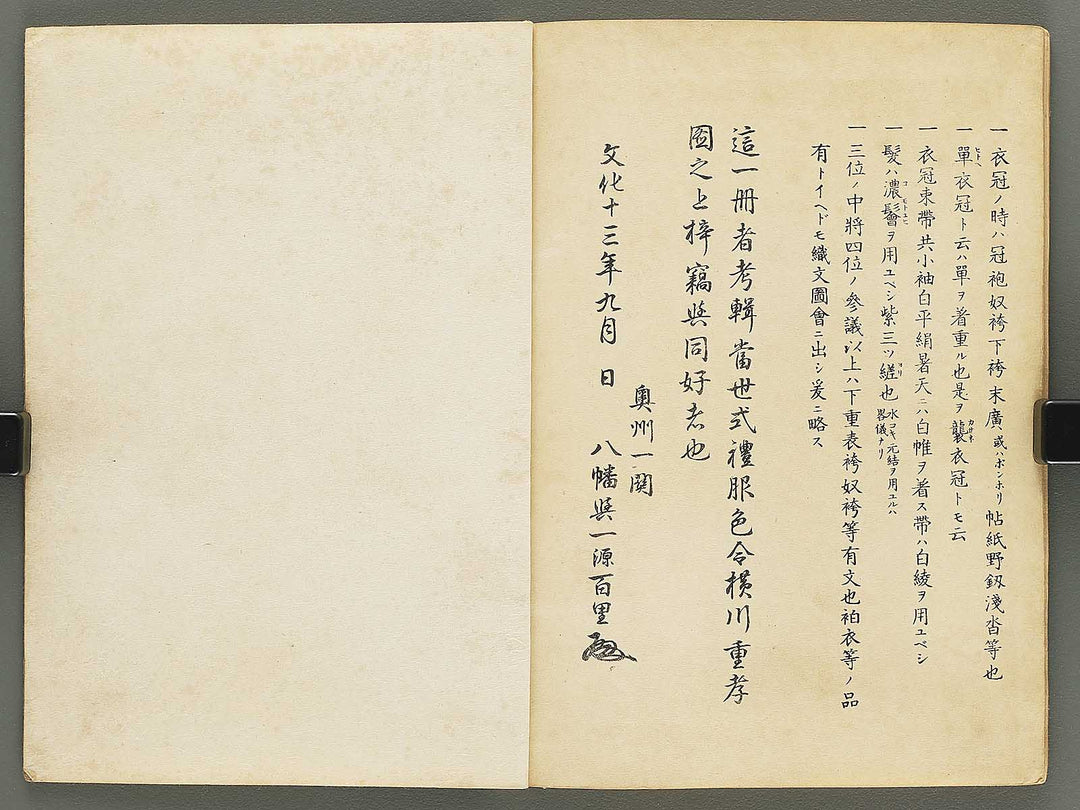 一衣冠ノ時ハ冠袍奴袴下袴末廣或ハボンボリ帖紙野釼淺沓等也
一單衣冠ト云ハ單ヲ着重ル也是ヲ襲衣冠トモ云
一衣冠束帶共小袖白平絹暑天ニハ白帷ヲ着ス帶ハ白綾ヲ用ユベシ
一髮ハ濃鬠ヲ用ユベシ紫三ツ縒也水コキ元結ヲ用ユルハ畧儀ナリ
一三位ノ中將四位ノ參議以上ハ下重表袴奴袴等有文也袙衣等ノ品
有トイヘドモ織文圖會ニ出シ爰ニ略ス
這一冊者考輯當世式禮服色令横川重孝
圀之上梓竊與同好志也
文化十三年九月 日
奥州一関
八幡與一源百里